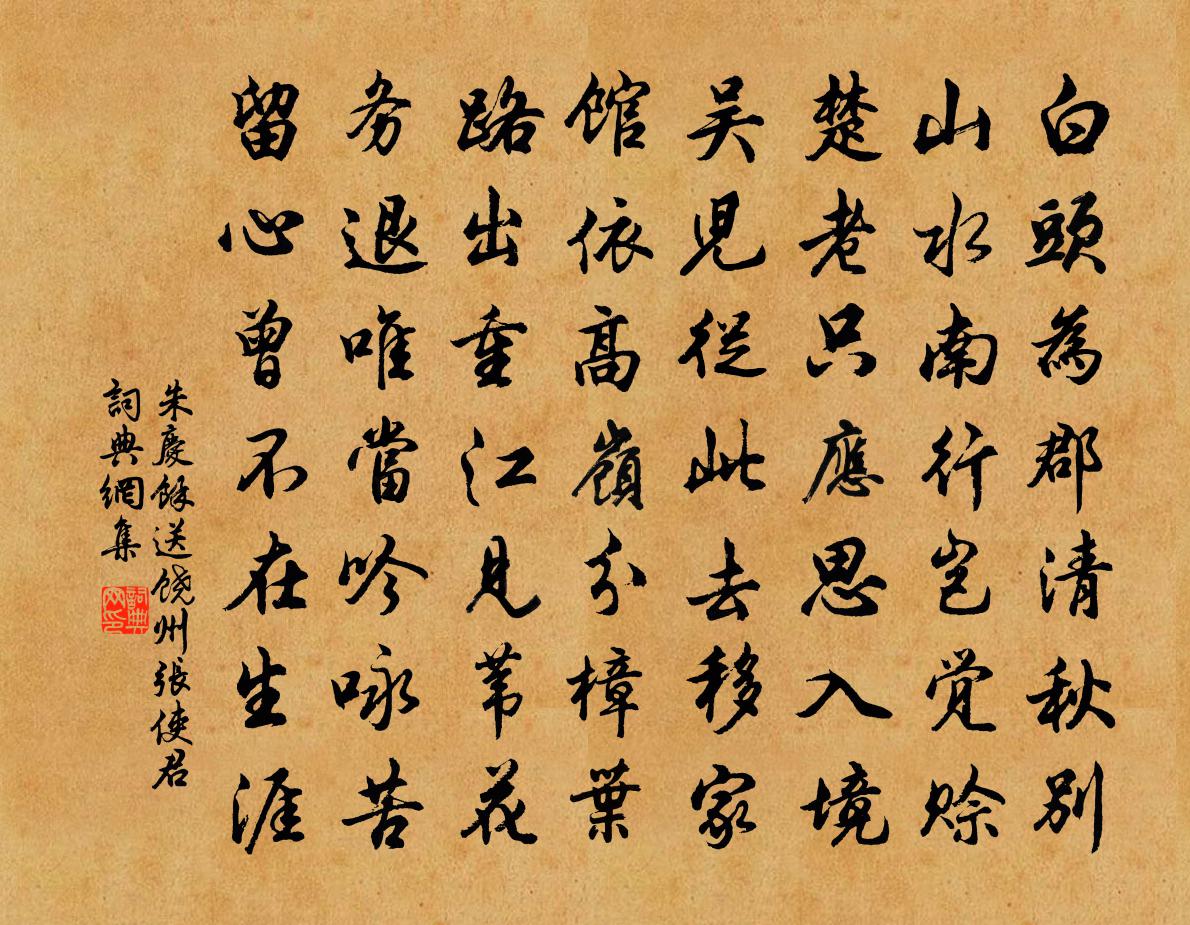 白頭為郡清秋別
山水南行岂觉赊
楚老只應思入境
吴兒從此去移家
馆依高嶺分樟葉
路出重江見苇花
务退唯當吟咏苦
留心曾不在生涯
朱慶餘送饶州張使君
詞典網集
詞典
网印